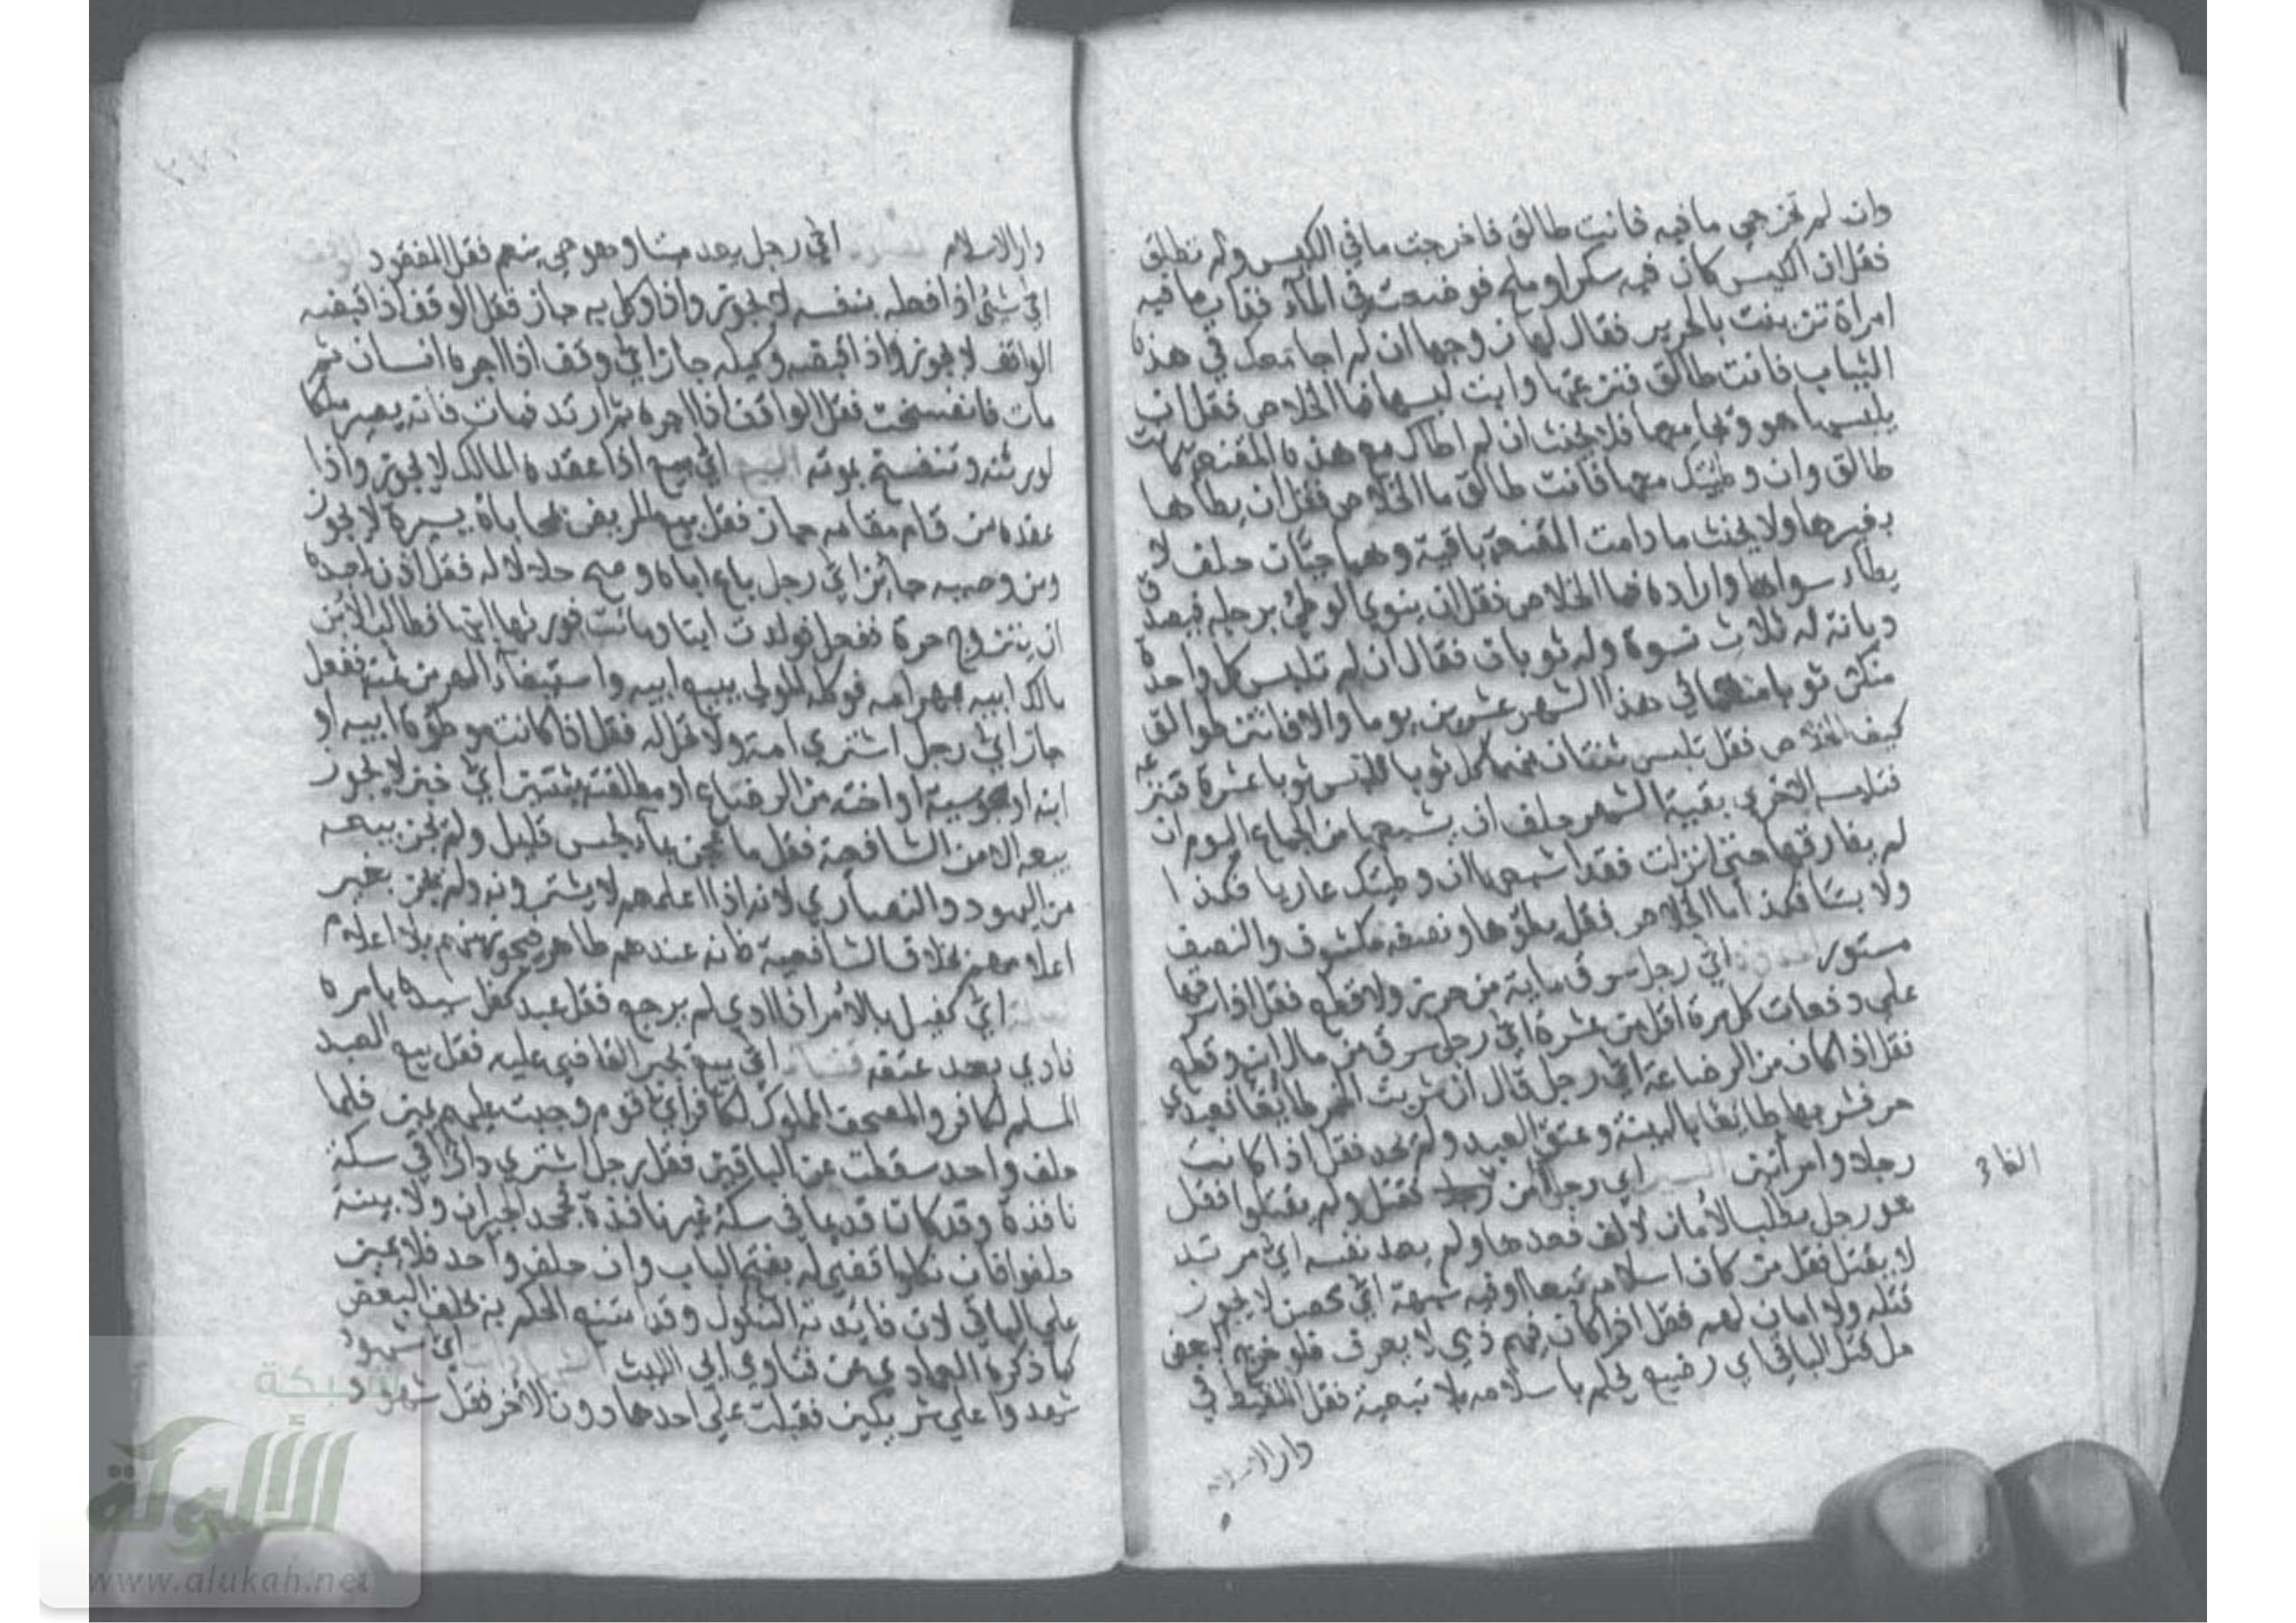 وان لم تخرجي مافيه فانت طالق فاخرجت مافي الكيس ولم تطلق
فقل ان الكيس كان فيه سكر او ملح فوضعت في الماء فذاب ما فيه
امراة تزينت بالحرير فقال لها زوجها ان لم اجامعك في هذه
الثياب فانت طالق فنزعتها وابت لبسها فما الخلاص فقل ان
يلبسها هو ويجامعها فلا يحنث ان لم اطاك مع هذه المقنعة فانت
طالق وان وطيتك معها فانت طالق ما الخلاص فقل ان يطاها
بغيرها ولا يحنث ما دامت المقنعة باقية وهما حيان حلف لا
يطا سواها واراده فما الخلاص فقل ان ينوي الوطئ برجله فيصدق
ديانة له ثلاث نسوة وله ثوبان فقال ان لم تلبس كل واحدة
منكن ثوبا منهما في هذا الشهر عشرين يوما والا فانتن طوالق
كيف الخلاص فقل تلبس ثنتان منهما كل ثوبا ثوبا عشرة فتنزعه
فتلبسه الاخرى بقية الشهر حلف ان يشبعها من الجماع اليوم ان
لم يفارقها حتى انزلت فقد اشبعها ان وطيتك عاريا فكذا
ولابسا فكذا ما الخلاص فقل يطؤها ونصفه مكشوف والنصف
مستور اي رجل سرق مائة من حرز ولا قطع فقل اذا سرقها
على دفعات كل مرة اقل من عشرة اي رجل سرق من مال ابنه وقطع
فقل اذا كان من الرضاعة اي رجل قال ان شربت الخمر طائعا فعبدي
حر فشربها طائعا بالبينة وعتق العبد ولم يحد فقل اذا كانت
رجلا وامراتين اي رجل امن فقتل ولم يقتلوا فقل
هو رجل طلب الامان لالف فعدها ولم يعد نفسه اي مرتد
لا يقتل فقل من كان اسلامه تبعا او فيه شبهة اي حصن لا يجوز
قتله ولا امان لهم فقل اذا كان فيهم ذمي لا يعرف فلو خرج البعض
حل قتل الباقي اي رضيع يحكم باسلامه بلا تبعية فقل اللقيط في
دار الاسلام
دار الاسلام اي رجل يعد ميتا وهو حي ينعم فقل المفقود الوقف
اي شئ اذا فعله بنفسه لا يجوز واذا وكل به جاز فقل الوقف اذا قبضه
الواقف لا يجوز واذا قبضه وكيله جاز اي وقف اذا اجره انسان ثم
مات فانفسخت فقل الواقف اذا اجره ثم ارتد فمات فانه يصير ملكا
لورثته وتنفسخ بموته البيع اي بيع اذا عقده المالك لا يجوز واذا
عقده من قام مقامه جاز فقل بيع المريض بمحاباة يسيرة لا يجوز
ومن وصيه جائز اي رجل باع اباه وصح حلالا له فقل اذن لعبده
ان يتزوج حرة ففعل فولدت ابنا وماتت فورثها ابنها فطالب الابن
مالك ابيه بمهر امه فوكله المولى ببيع ابيه واستيفاء المهر من ثمنه ففعل
جاز اي رجل اشترى امة ولا تحل له فقل اذا كانت موطؤة ابيه او
ابنه او مجوسية او اخته من الرضاع او مطلقته بثنتين اي خبز لا يجوز
بيعه الا من الشافعية فقل ما عجن بماء نجس قليل ولم يجز بيعه
من اليهود والنصارى لانه اذا اعلمهم لا يشترونه ولم يجز بغير
اعلامهم بخلاف الشافعية فانه عندهم طاهر فيجوز منهم بلا اعلام
اي كفيل بالامر اذا ادى لم يرجع فقل عبد كفل سيده بامره
فادى بعد عتقه قضاء اي بيع يجبر القاضي عليه فقل بيع العبد
المسلم لكافر والمصحف المملوك لكافر اي قوم وجبت عليهم يمين فلما
حلف واحد سقطت عن الباقين فقل رجل اشترى دارا في سكة
نافذة وقد كان قديما في سكة غير نافذة فجحد الجيران ولا بينة
حلفوا فان نكلوا قضي له بفتح الباب وان حلف واحد فلا يمين
على الباقي لان فائدته النكول وقد امتنع الحكم به بحلف البعض
كما ذكره العمادي عن فتاوي ابي الليث الشهادات اي شهود
شهدوا على شريكين فقبلت على احدهما دون الاخر فقل شهود
شبكة
الألوكة
www.alukah.net